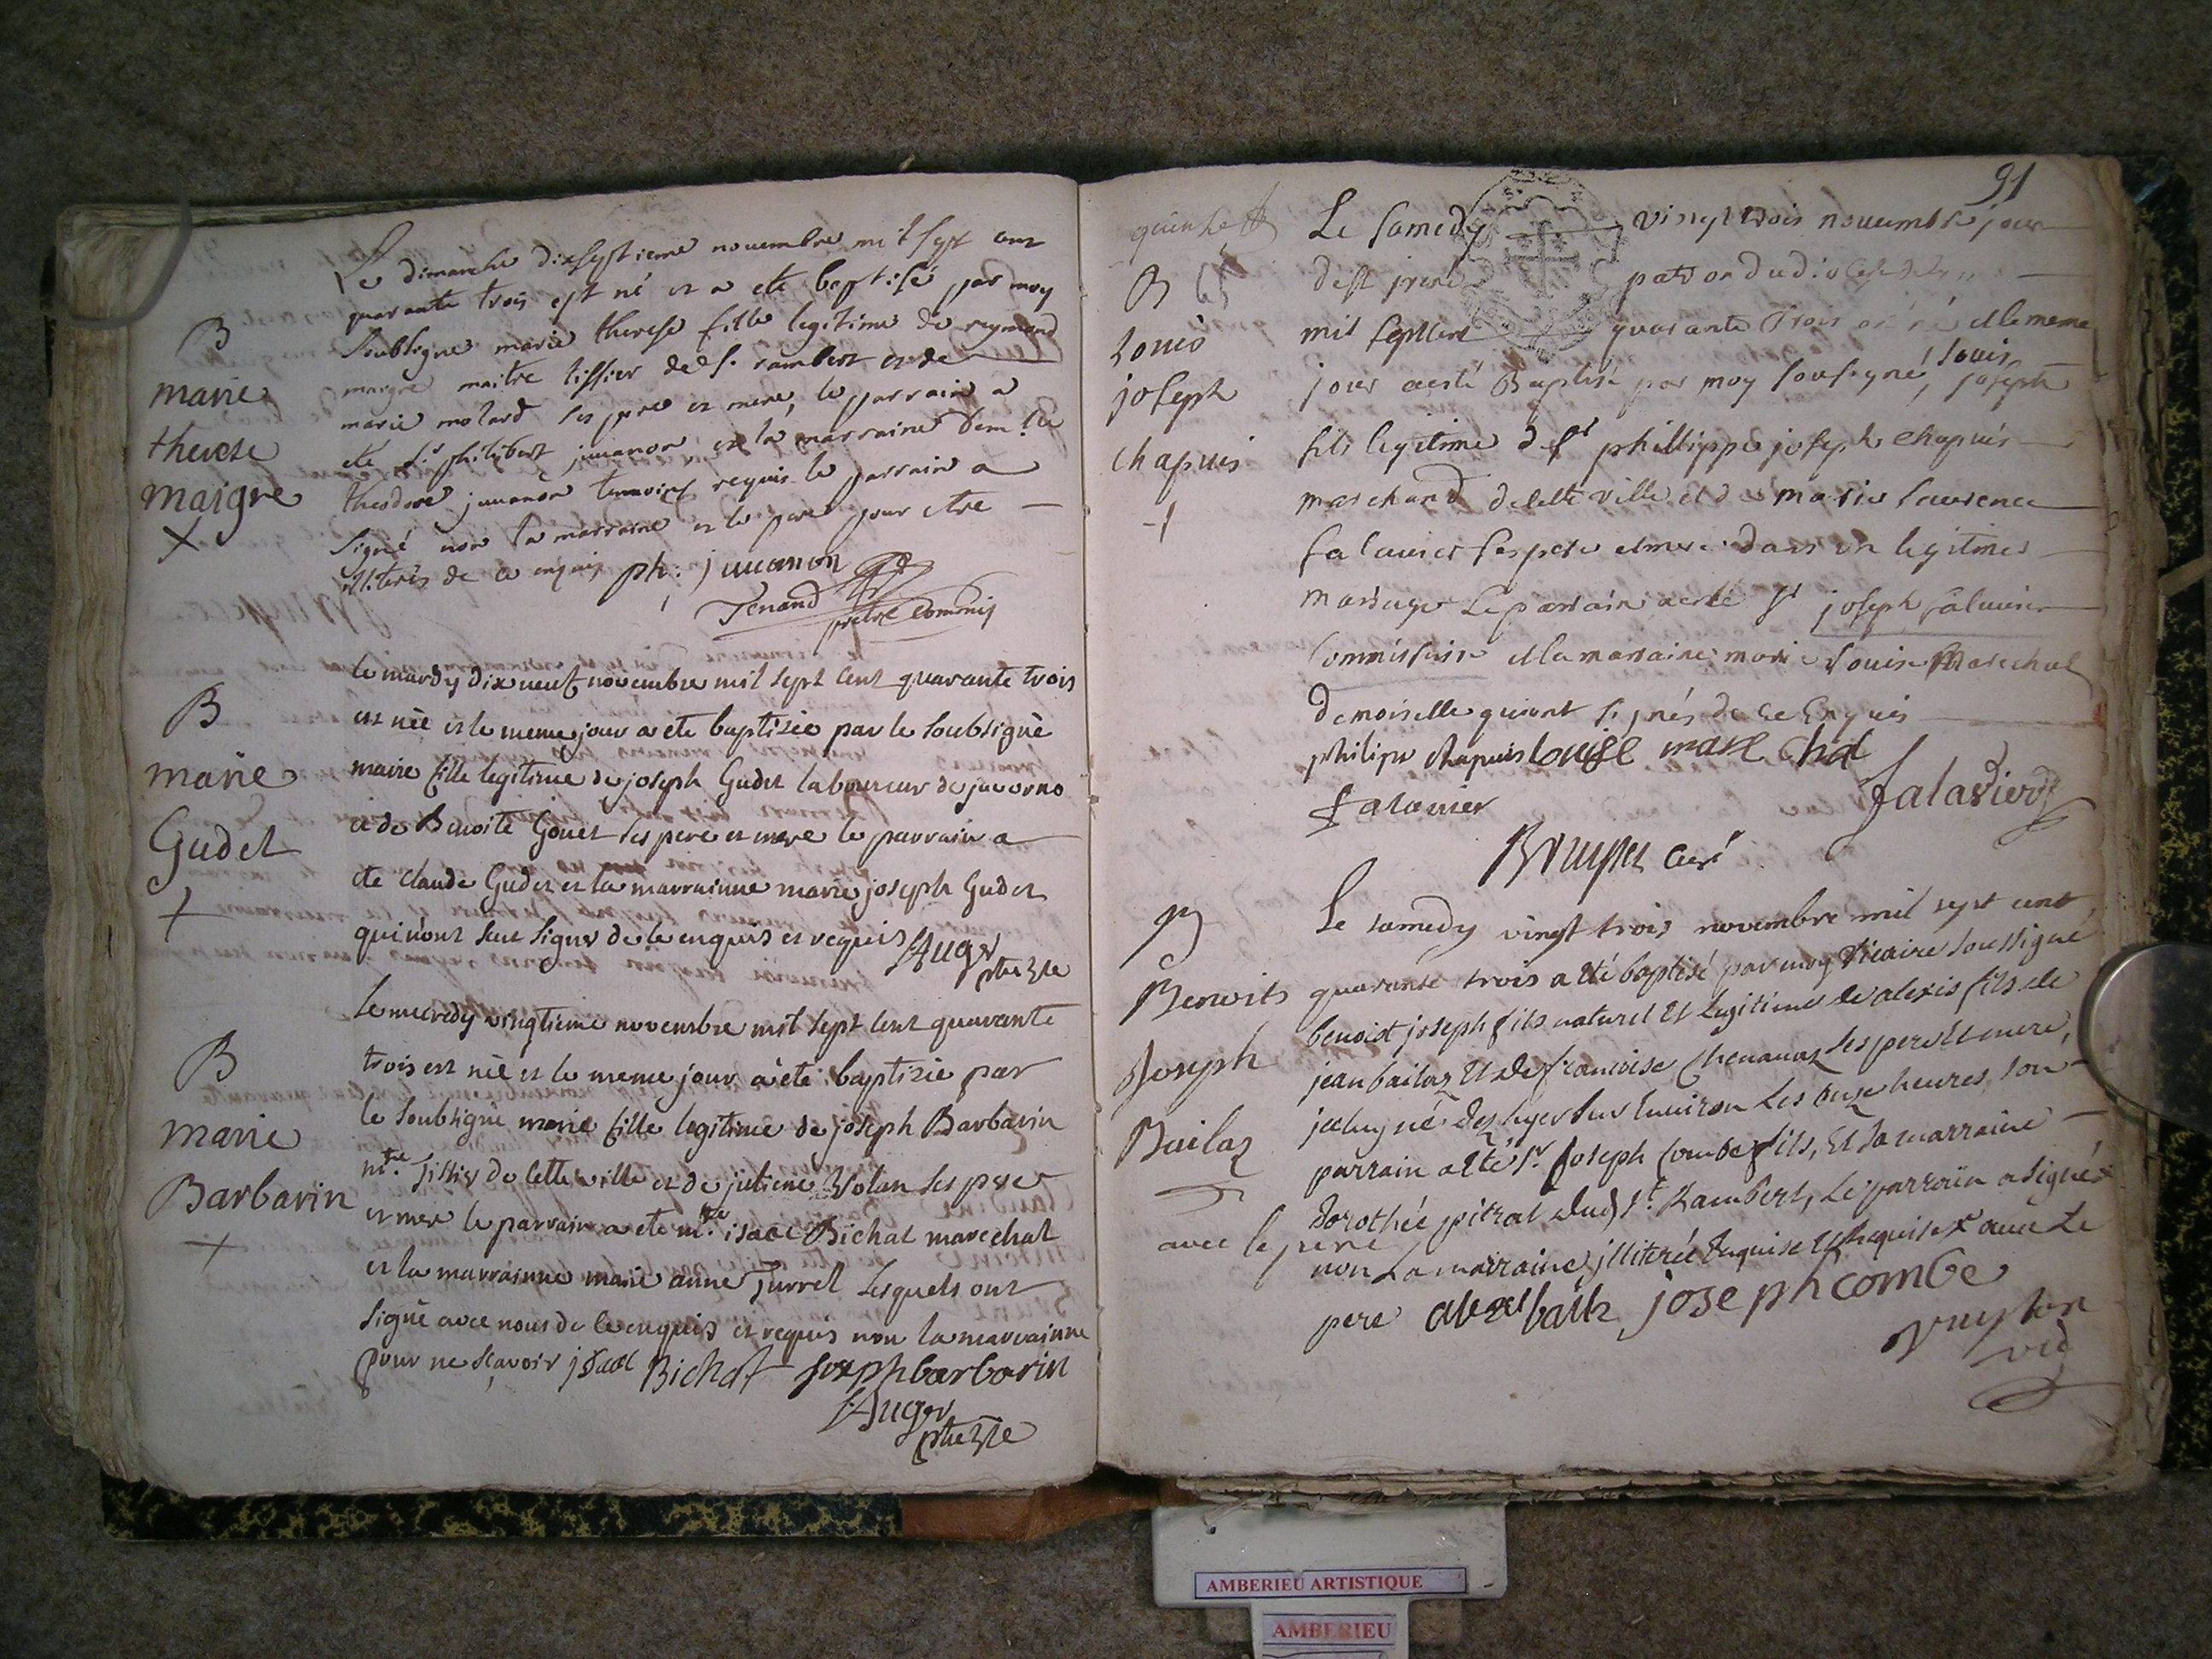 Le dimanche dixseptieme novembre mil sept cent
quarante trois est né et a eté baptisé par moy
B
soubsigné marie therese fille legitime de reymond
marie
maigre maitre tissier de St. rambert et de
marie molard ses pere et mere, le parrain a
therese
eté Sr. philibert juvanon et la marraine demlle
maigre
theodore juvanon temoins requis le parrain a
X
signé non la marraine et le pere pour etre
illiterés de ce enquis ph: juvanon
Tenand
pretre commis
le mardy dix neuf novembre mil sept cent quarante trois
B
est née et le meme jour a eté baptisée par le soubsigné
marie
marie fille legitime de joseph Gudet laboureur de juvorno
Gudet
et de Benoite Gouet ses pere et mere le parrain a
eté Claude Gudet et la marrainne marie joseph Gudet
+
qui n'ont sceu signer de ce enquis et requis Auger
ptre
le mecredy vingtieme novembre mil sept cent quarante
B
trois est née et le meme jour a eté baptisée par
marie
le soubsigné marie fille legitime de joseph Barbarin
Barbarin
mtre. tissier de cette ville et de julienne Volan ses pere
+
et mere le parrain a eté mtre. isaac Bichat marechal
et la marrainne marie anne Jurret lesquels ont
signé avec nous de ce enquis et requis non la marrainne
pour ne sçavoir jsaac Bichat joseph barbarin
Auger
ptre
91
Le samedy vingt trois novembre jour
B
de st patron du diocese
mil sept cent quarante Trois né et le meme
Louis
jour a esté Baptisé par moy sousigné, Louis joseph
joseph
fils legitime de sr phillippe joseph Chapuis
chapuis
marchand de cette ville et de marie laurence
+
falavier ses pere et mere dans un legitimes
mariage Le parrain a esté sr joseph falavier
Commissaire et la marraine marie Louise Marechal
demoiselle qui ont signés de ce Enquis
philipe chapuis louise mare chal
falavier falavier
Bruyset curé
B
Le samedy vingt trois novembre mil sept cent
Benoits
quarante trois a eté baptisé par moy vicaire soussigné
benoist joseph fils naturel et legitime de alexis fils de
Joseph
jean bailaz et de francoise Chenavaz ses pere et mere,
Bailaz
jceluy né des hyer sur lenviron les onze heures, son
parrain a eté Sr. Joseph Combe fils, Et sa marraine
dorothée pitrat dud St. Rambert, Le parrain a signé
avec le pere
non La marraine jlliterée Enquise et Requise avec Le
pere alexi bailaz joseph combe
vic
AMBERIEU ARTISTIQUE
AMBERIEU